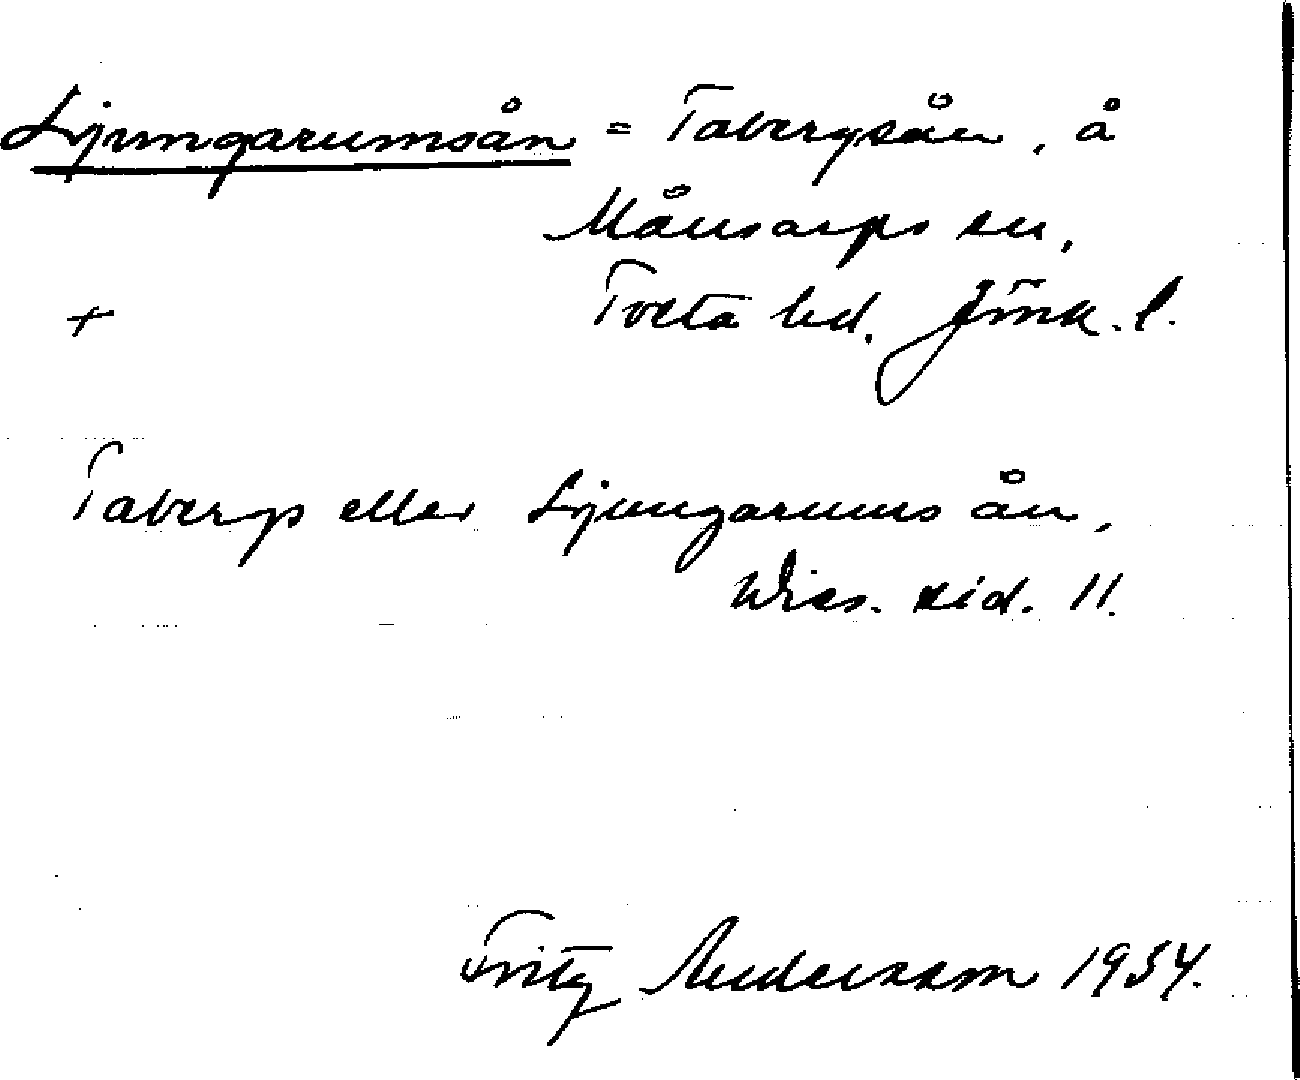 Ljungarumsån = Tabergsån, å
Månsarps sn,
+ Tveta hd. Jönk. l.
Tabergs eller Ljungarums ån,
Wies. sid. 11.
Fritz Andersson 1954.